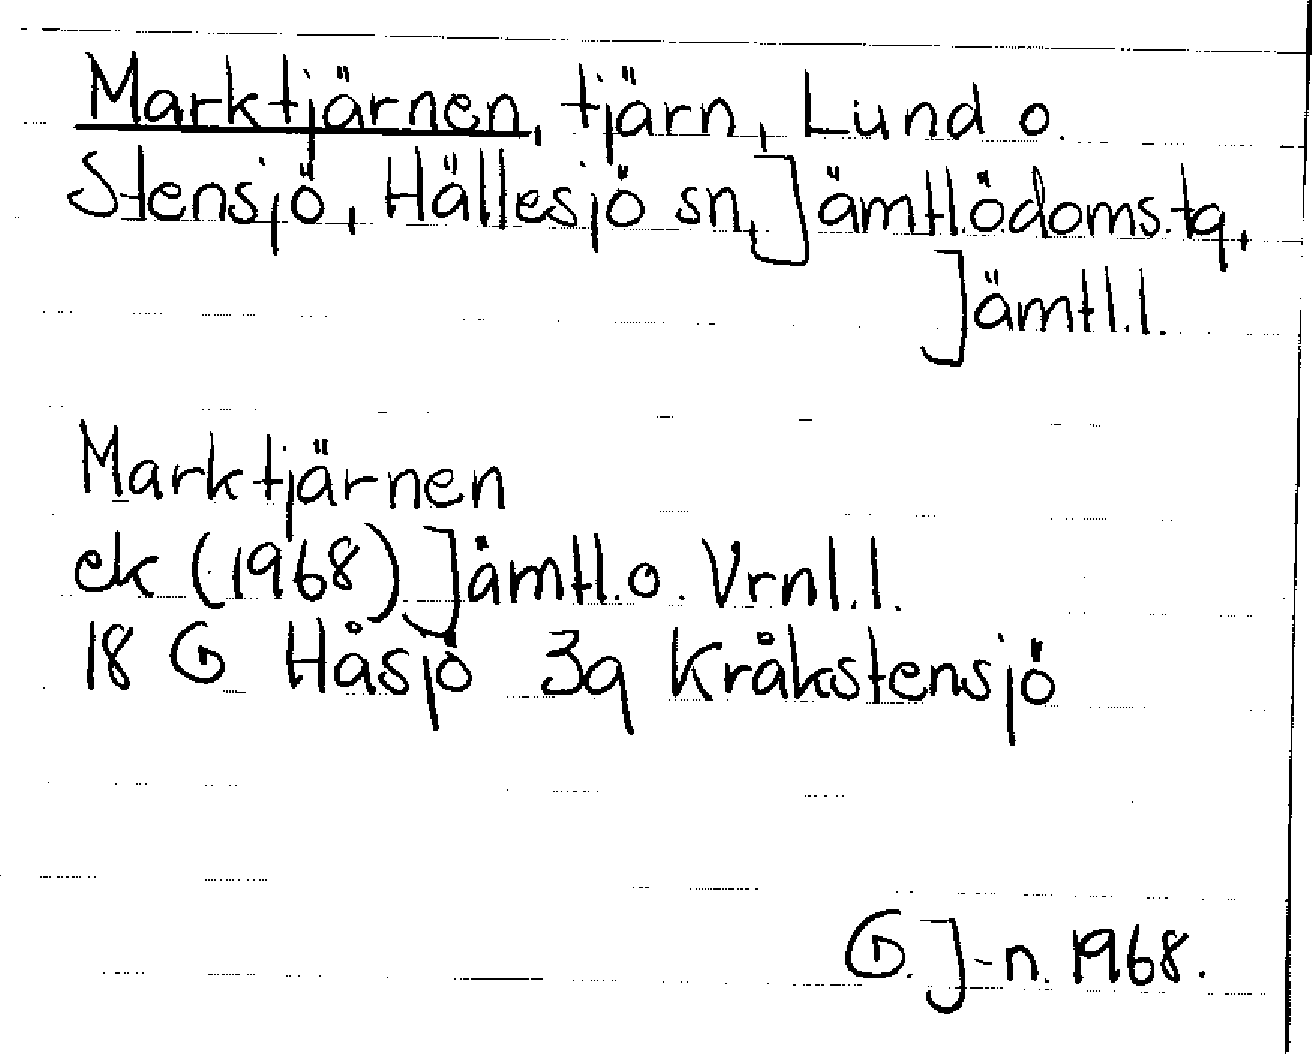 Marktjärnen, tjärn, Lund o.
Stensjö, Hällesjö sn, Jämtl.Ödoms.tg,
Jämtl.l.
Marktjärnen
ek (1968) Jämtl.o. Vrnl.l.
18 G Håsjö 3g Kråkstensjö
G. J-n. 1968.